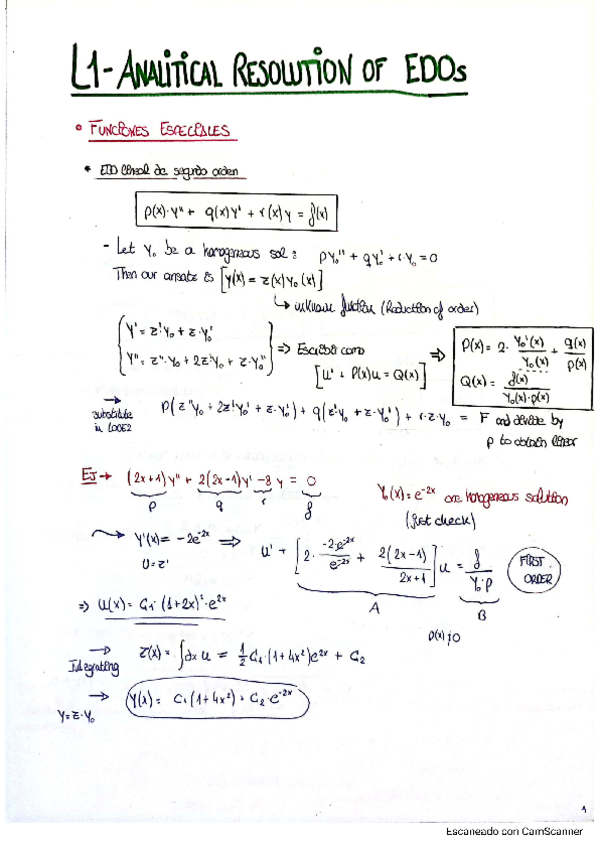 L1-ANALITICAL RESOLUTION OF EDOs
° FUNCIONES ESPECIALES
* EDO lineal de segundo orden
p(x)·y'' + q(x)y' + r(x)y = f(x)
- Let y₀ be a homogeneous sol: py₀'' + qy₀' + r·y₀ = 0
Then our ansatz is [y(x) = z(x)y₀(x)]
↳ unknown function (Reduction of order)
{ y' = z'y₀ + z·y₀'
y'' = z''·y₀ + 2z'y₀' + z·y₀'' } => Escribir como
[u' + P(x)u = Q(x)]
=> P(x) = 2· y₀'(x)/y₀(x) + q(x)/p(x)
Q(x) = f(x)/y₀(x)·p(x)
→ substitute in p(z''y₀ + 2z'y₀' + z·y₀'') + q(z'y₀ + z·y₀') + r·z·y₀ = F and divide by
p to obtain
EJ → (2x+1)y'' + 2(2x-1)y' - 8y = 0
p q r f
y₀(x) = e^-2x are homogeneous solution
(just check)
y'(x) = -2e^-2x =>
u = z'
u' + [2· -2·e^-2x/e^-2x + 2(2x-1)/2x+1] u = f/y₀·p
A B
FIRST ORDER
=> u(x) = C₁·(1+2x)²·e^2x
p(x)≠0
→ Integrating z(x) = ∫dx u = 1/2 C₁(1+4x²)e^2x + C₂
→ y=z·y₀ y(x) = C₁(1+4x²) + C₂·e^-2x
1
Escaneado con CamScanner